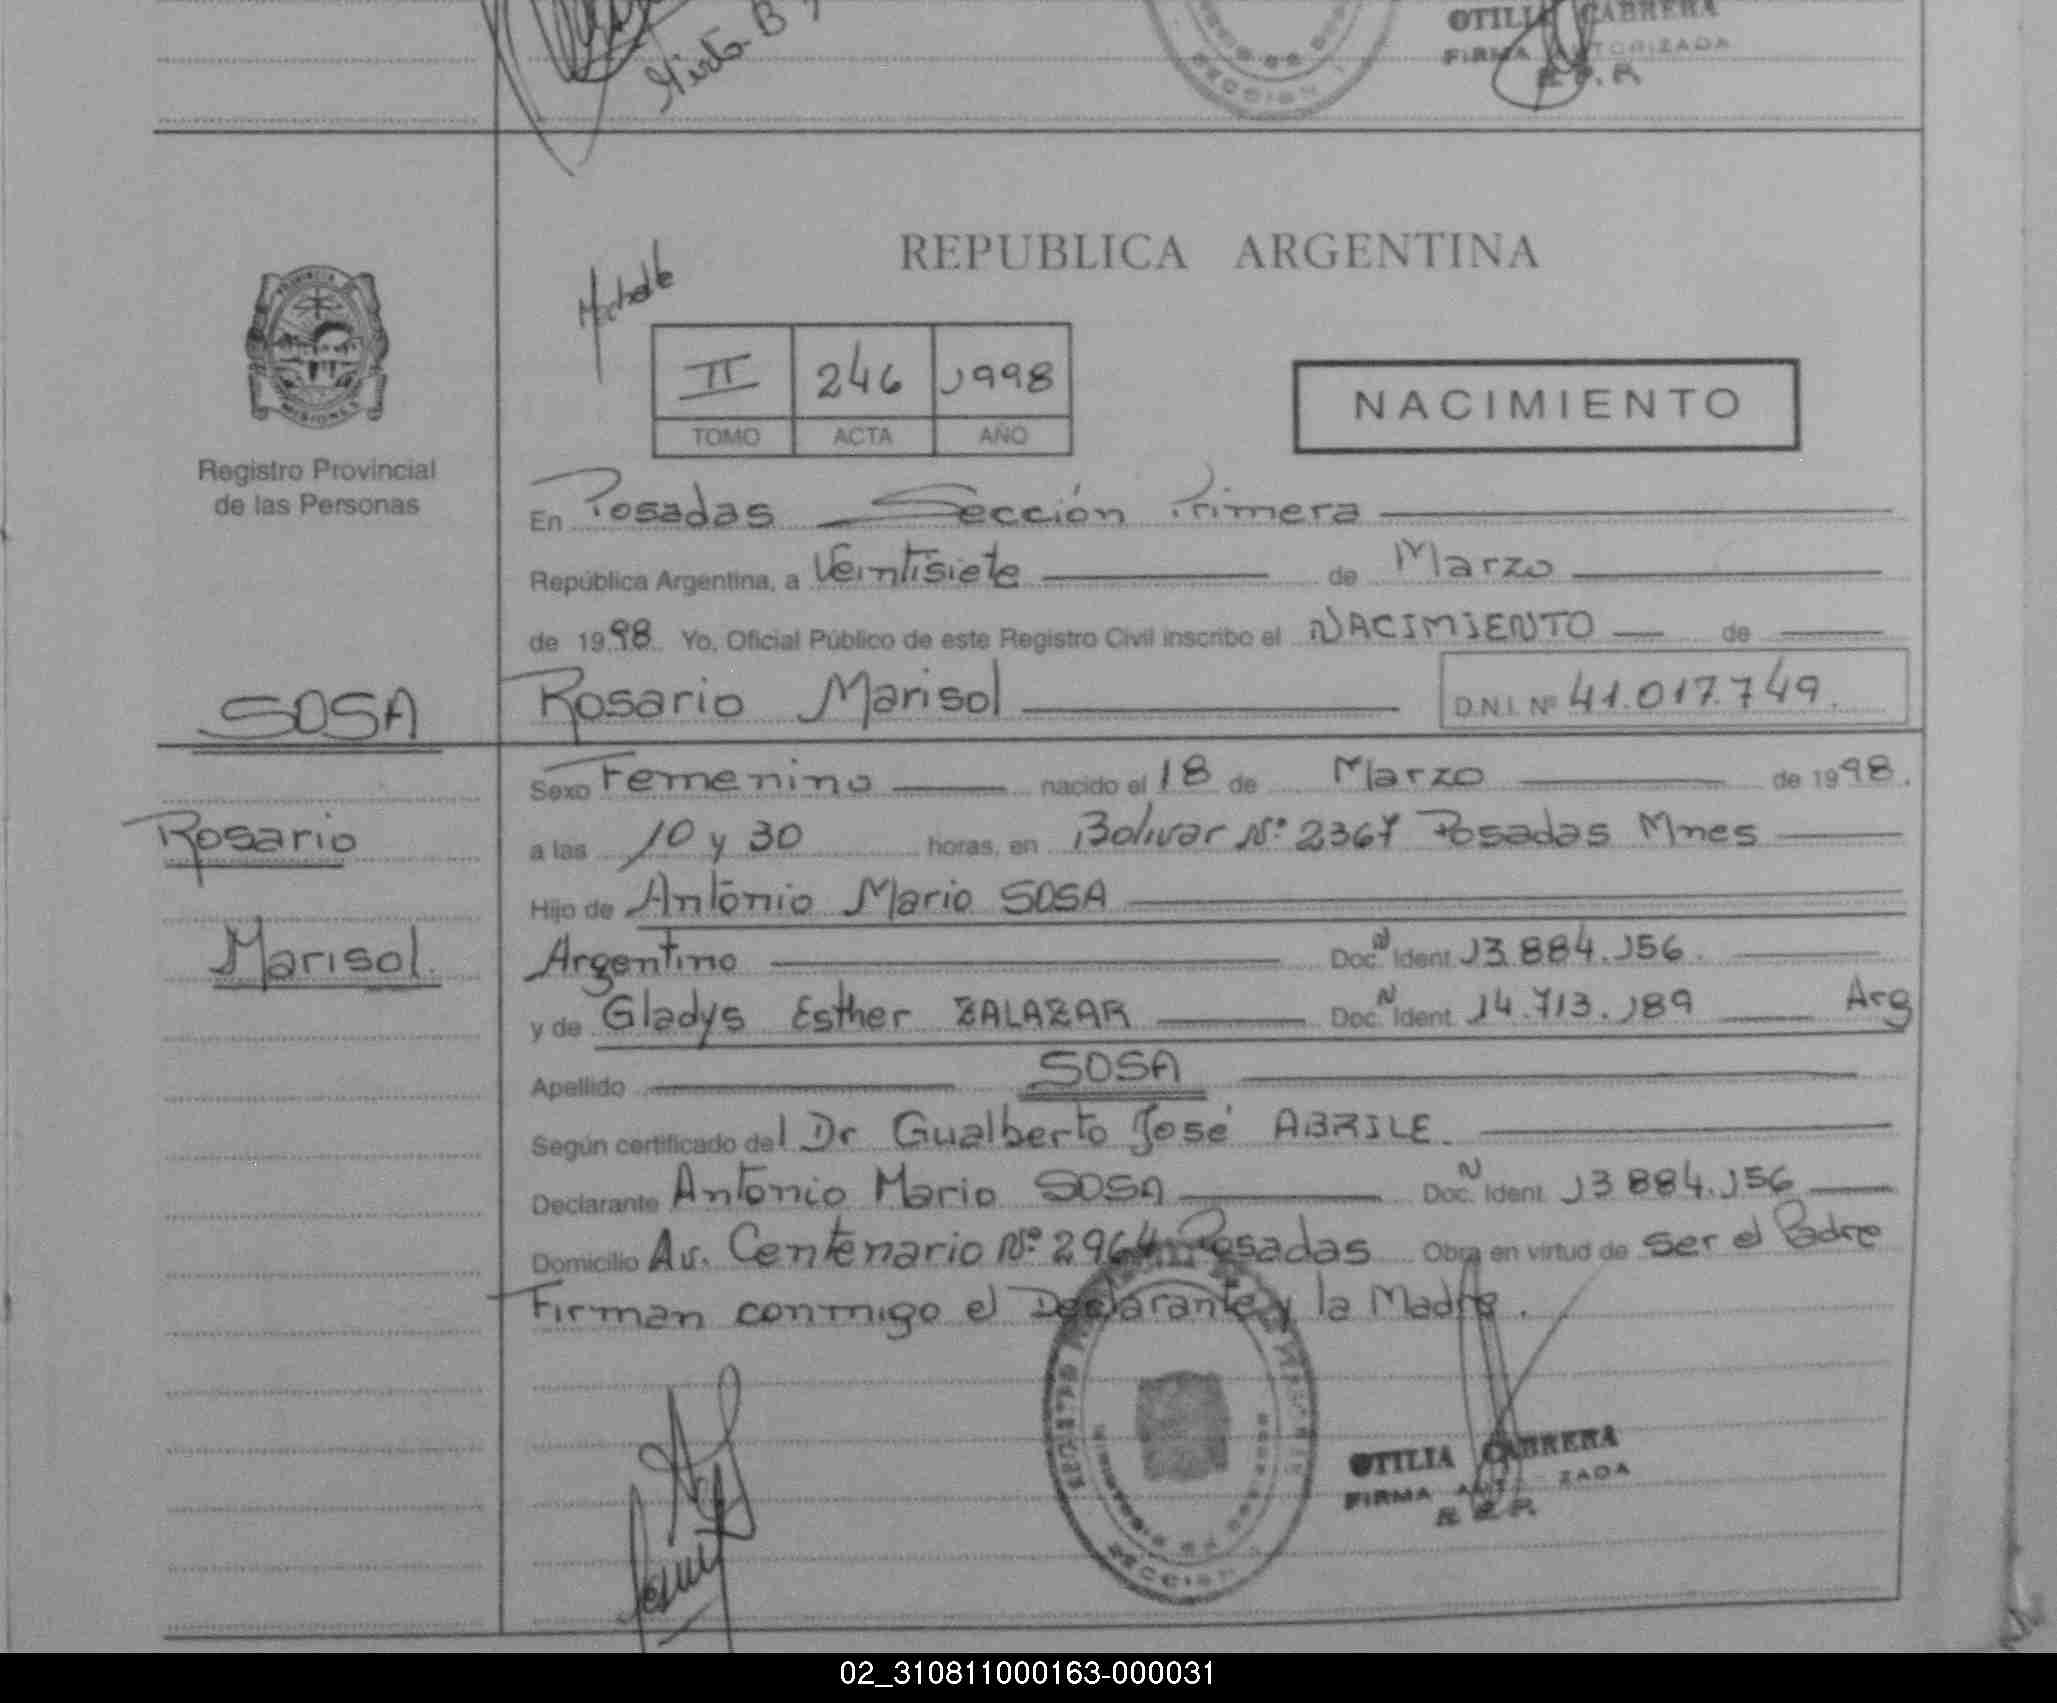 OTILIA CABRERA
FIRMA AUTORIZADA
R. P. P.
Mirta B
SECCION
REPUBLICA ARGENTINA
PROVINCIA DE
MISIONES
Registro Provincial
de las Personas
II 246 1998
TOMO ACTA AÑO
NACIMIENTO
En Posadas Sección Primera
República Argentina, a Veintisiete de Marzo
de 1998 Yo, Oficial Público de este Registro Civil inscribo el NACIMIENTO de
SOSA Rosario Marisol D.N.I. Nº 41.017.749.
Sexo Femenino nacido el 18 de Marzo de 1998.
Rosario
a las 10 y 30 horas, en Bolivar Nº 2367 Posadas Mnes
Hijo de Antonio Mario SOSA
Marisol.
Argentino Doc. N Ident. 13.884.156.
y de Gladys Esther ZALAZAR Doc. N Ident. 14.713.189 Arg
Apellido SOSA
Según certificado del Dr Gualberto José ABRILE.
Declarante Antonio Mario SOSA Doc. N Ident. 13884.156
Domicilio Av. Centenario Nº 2964 Posadas Obra en virtud de ser el Padre
Firman conmigo el Declarante y la Madre.
OTILIA CABRERA
FIRMA AUT ZADA
SECCION
02_310811000163-000031